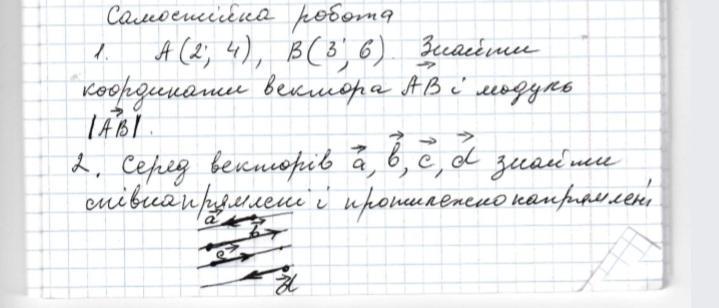 Самостійна робота
1. A(2; 4), B(3; 6). Знайти
координати вектора AB⃗ і модуль
|AB⃗|.
2. Серед векторів a⃗, b⃗, c⃗, d⃗ знайти
співнапрямлені і протилежно напрямлені
a⃗
b⃗
c⃗
d⃗